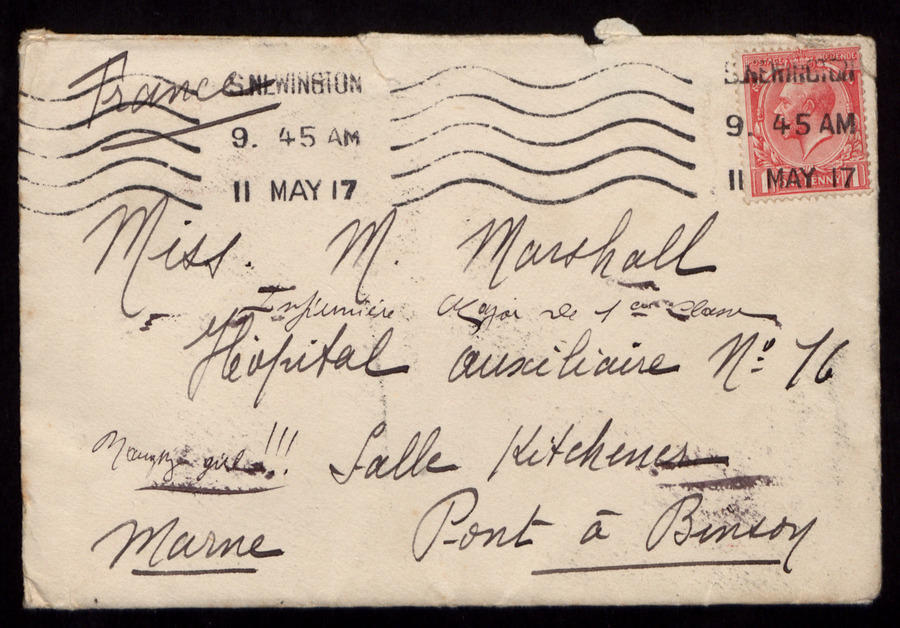 France
S. NEWINGTON
9. 45 AM
11 MAY 17
S. NEWINGTON
9. 45 AM
11 MAY 17
Miss. M. Marshall
Infirmière Major de 1ère Classe
Hôpital auxiliaire No: 76
Naughty girl!!!
Salle Kitchener
Marne
Pont à Binson